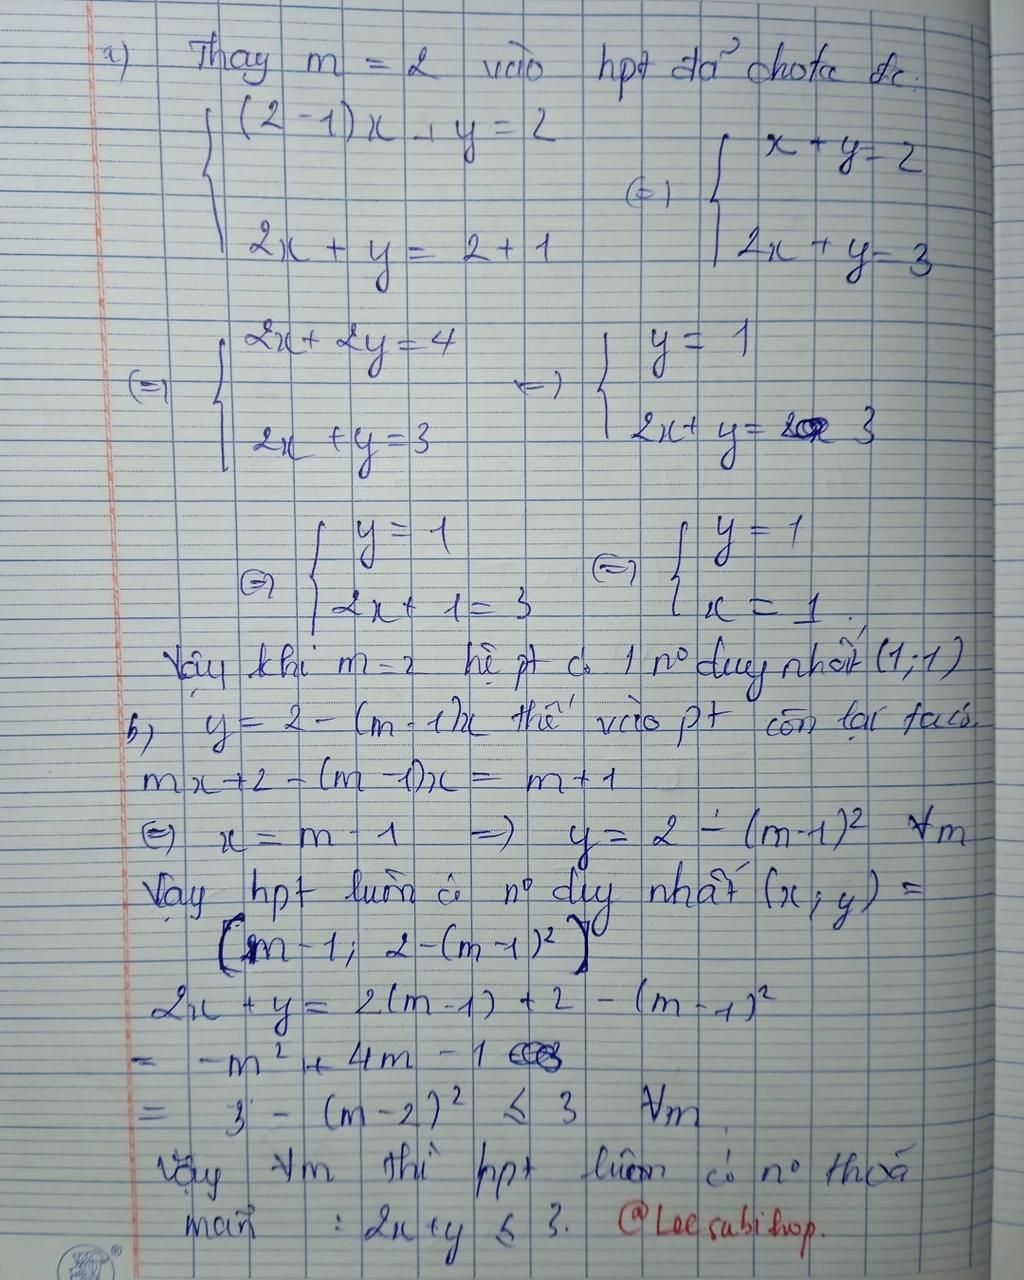 a) Thay m = 2 vào hpt đã cho ta đc.
(2 - 1)x + y = 2
(=) x + y = 2
2x + y = 2 + 1
2x + y = 3
(=) 2x + 2y = 4
(=) y = 1
2x + y = 3
2x + y = 3
(=) y = 1
(=) y = 1
2x + 1 = 3
x = 1.
Vậy khi m = 2 hệ pt có 1 nº duy nhất (1;1)
b) y = 2 - (m - 1)x thế vào pt còn lại ta có
mx + 2 - (m - 1)x = m + 1
(=) x = m - 1 => y = 2 - (m-1)² ∀m
Vậy hpt luôn có nº duy nhất (x; y) =
(m - 1; 2 - (m - 1)²)
2x + y = 2(m - 1) + 2 - (m - 1)²
= -m² + 4m - 1
= 3 - (m - 2)² ≤ 3 ∀m.
Vậy ∀m thì hpt luôn có nº thoả
mãn : 2x + y ≤ 3. @Leesubishop.